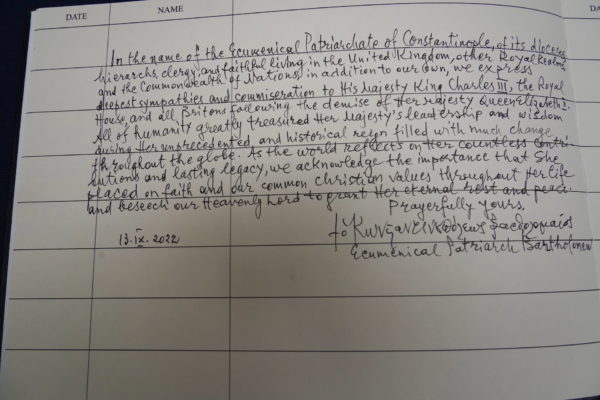 DATE NAME DA
In the name of the Ecumenical Patriarchate of Constantinople, of its dioceses,
hierarchs, clergy, and faithful living in the United Kingdom, other Royal Realms
and the Commonwealth of Nations, in addition to our own, we express
deepest sympathies and commiseration to His Majesty King Charles III, the Royal
House, and all Britons following the demise of Her Majesty Queen Elizabeth II.
All of humanity greatly treasured Her Majesty's leadership and wisdom
during Her unprecedented and historical reign filled with much change
throughout the globe. As the world reflects on Her countless contri-
butions and lasting legacy, we acknowledge the importance that She
placed on faith and our common christian values throughout Her life
and beseech our Heavenly Lord to grant Her eternal rest and peace.
Prayerfully yours,
13.IX.2022
Ecumenical Patriarch Bartholomew